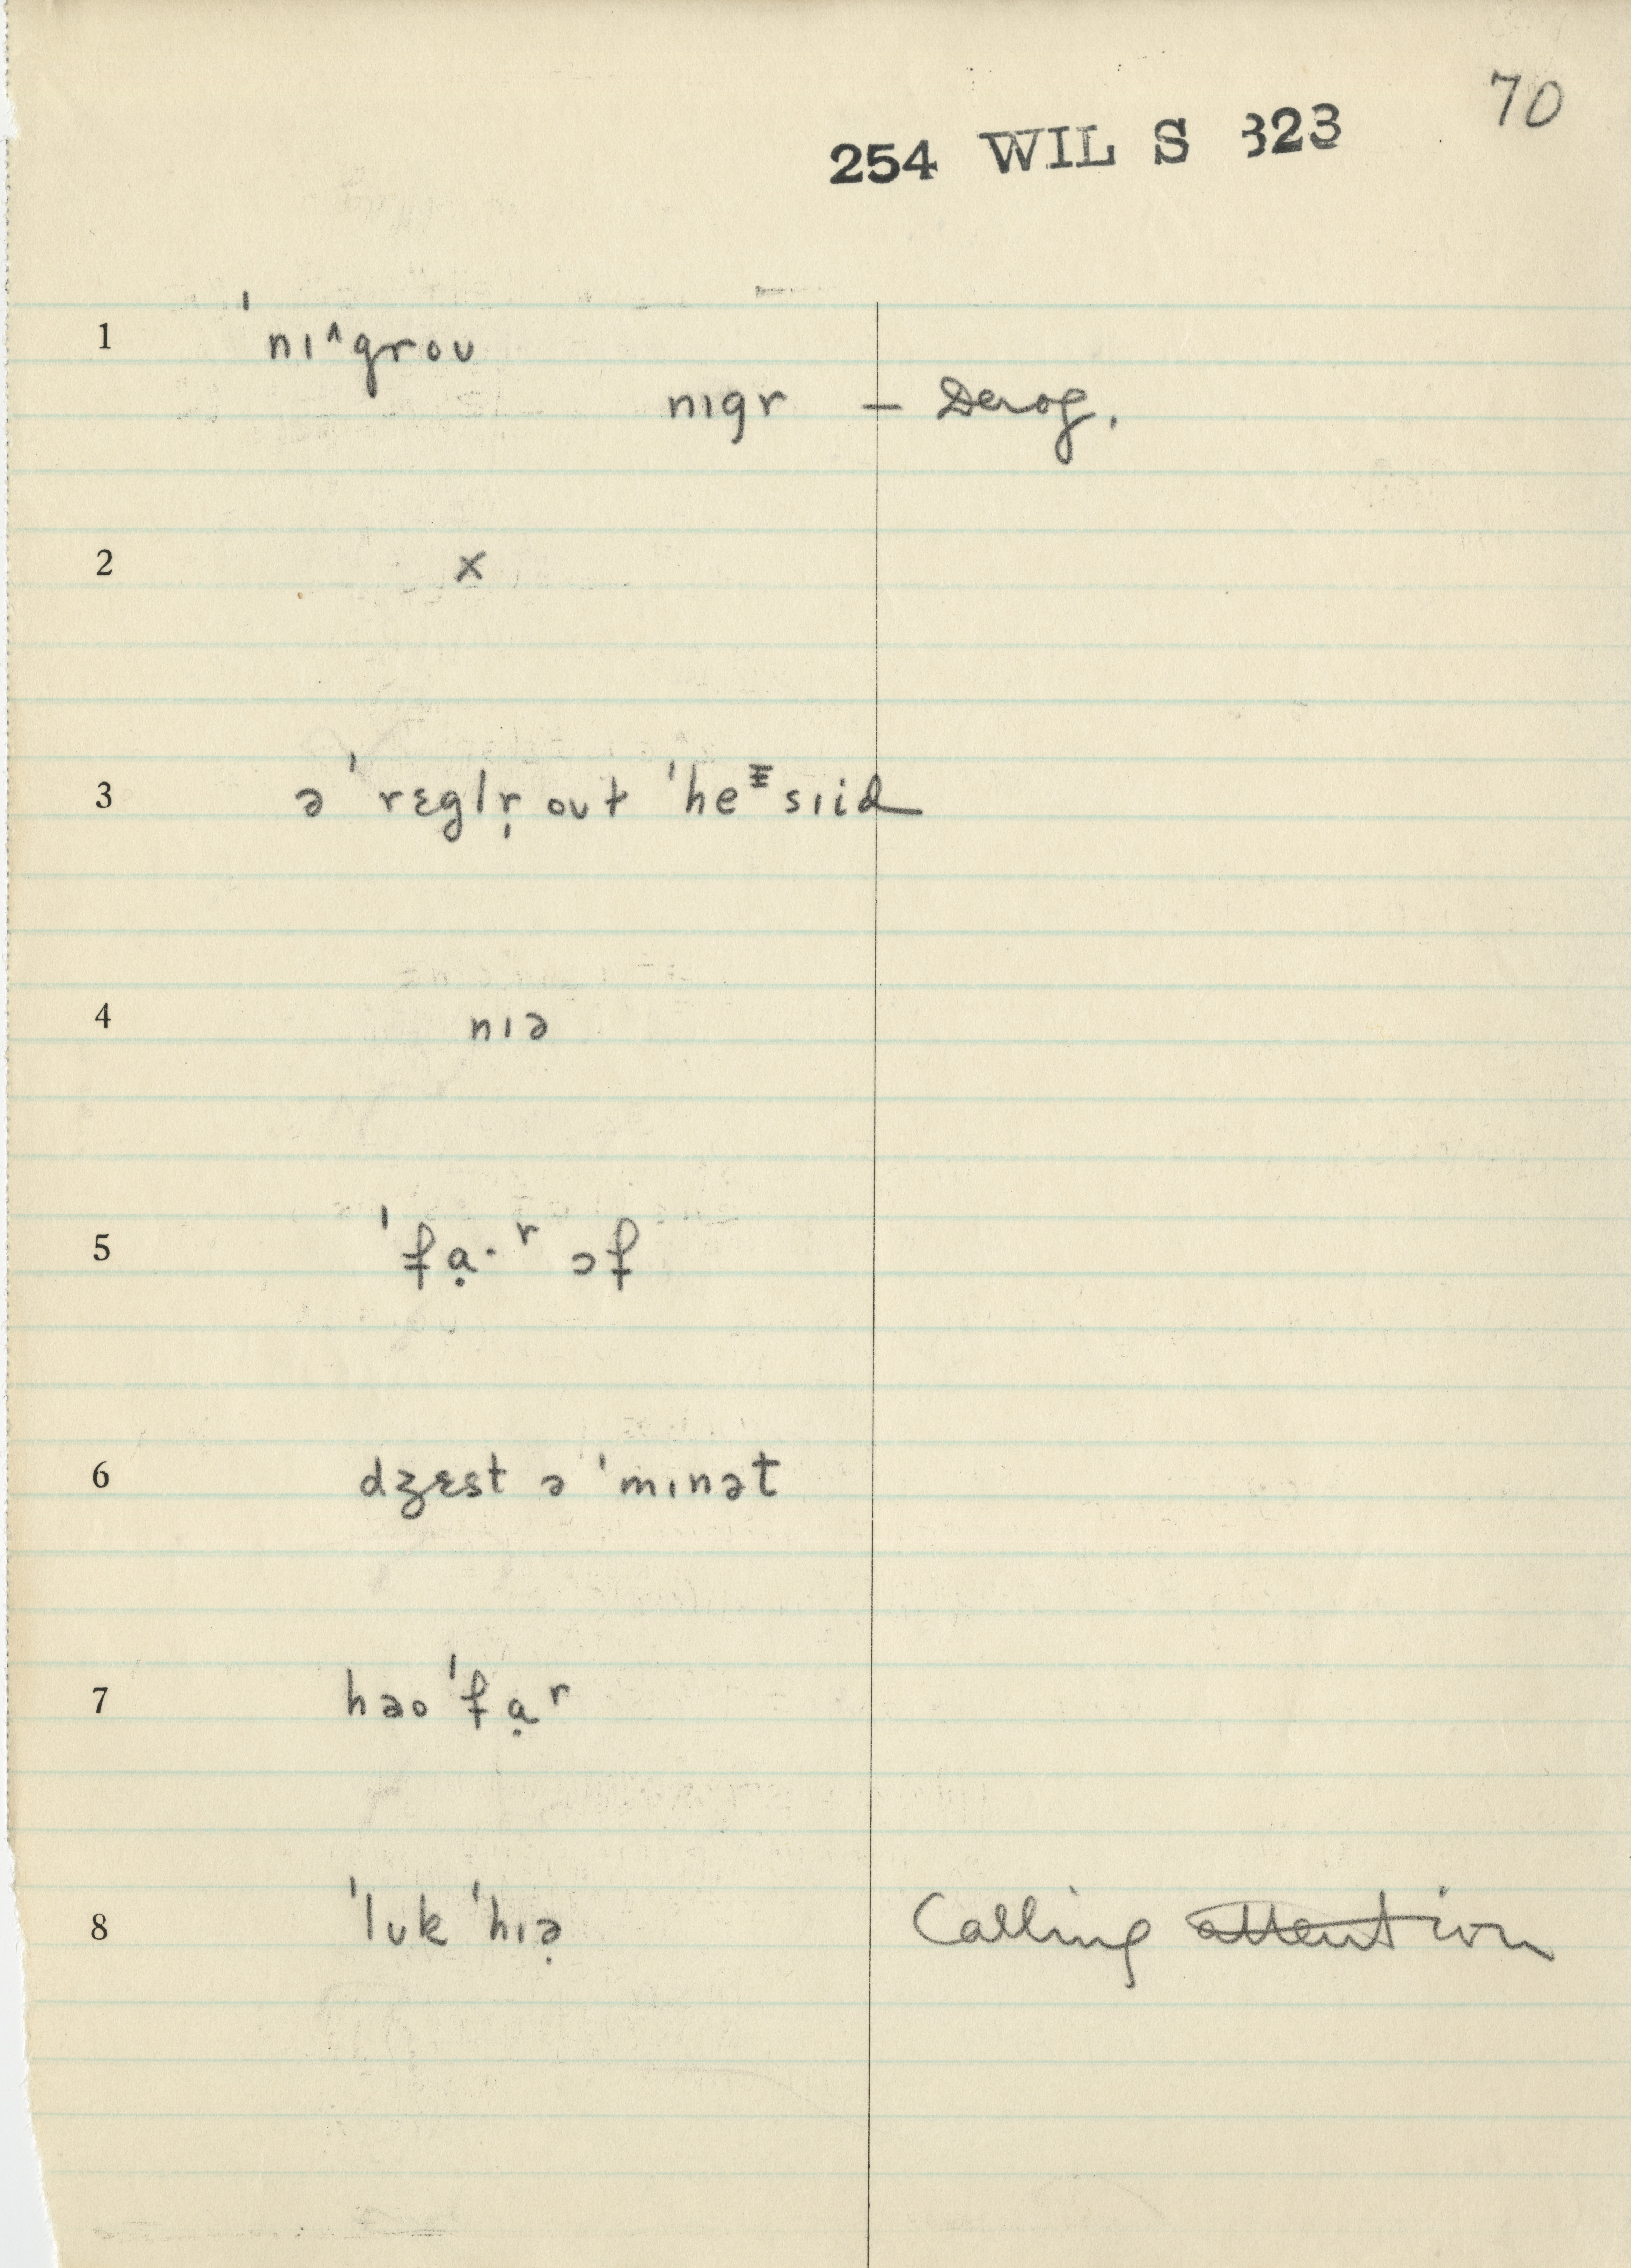 70
254 WIL S 323
1 ˈnɪ^groʊ
nɪgr – Derog.
2 x
3 ə ˈrɛglr̩ oʊt ˈheᵻsɪid
4 nɪə
5 ˈfạ·ʳ ɔf
6 dʒɛst ə ˈmɪnət
7 həo ˈfạʳ
8 ˈlʊk ˈhɪə̣ Calling attention